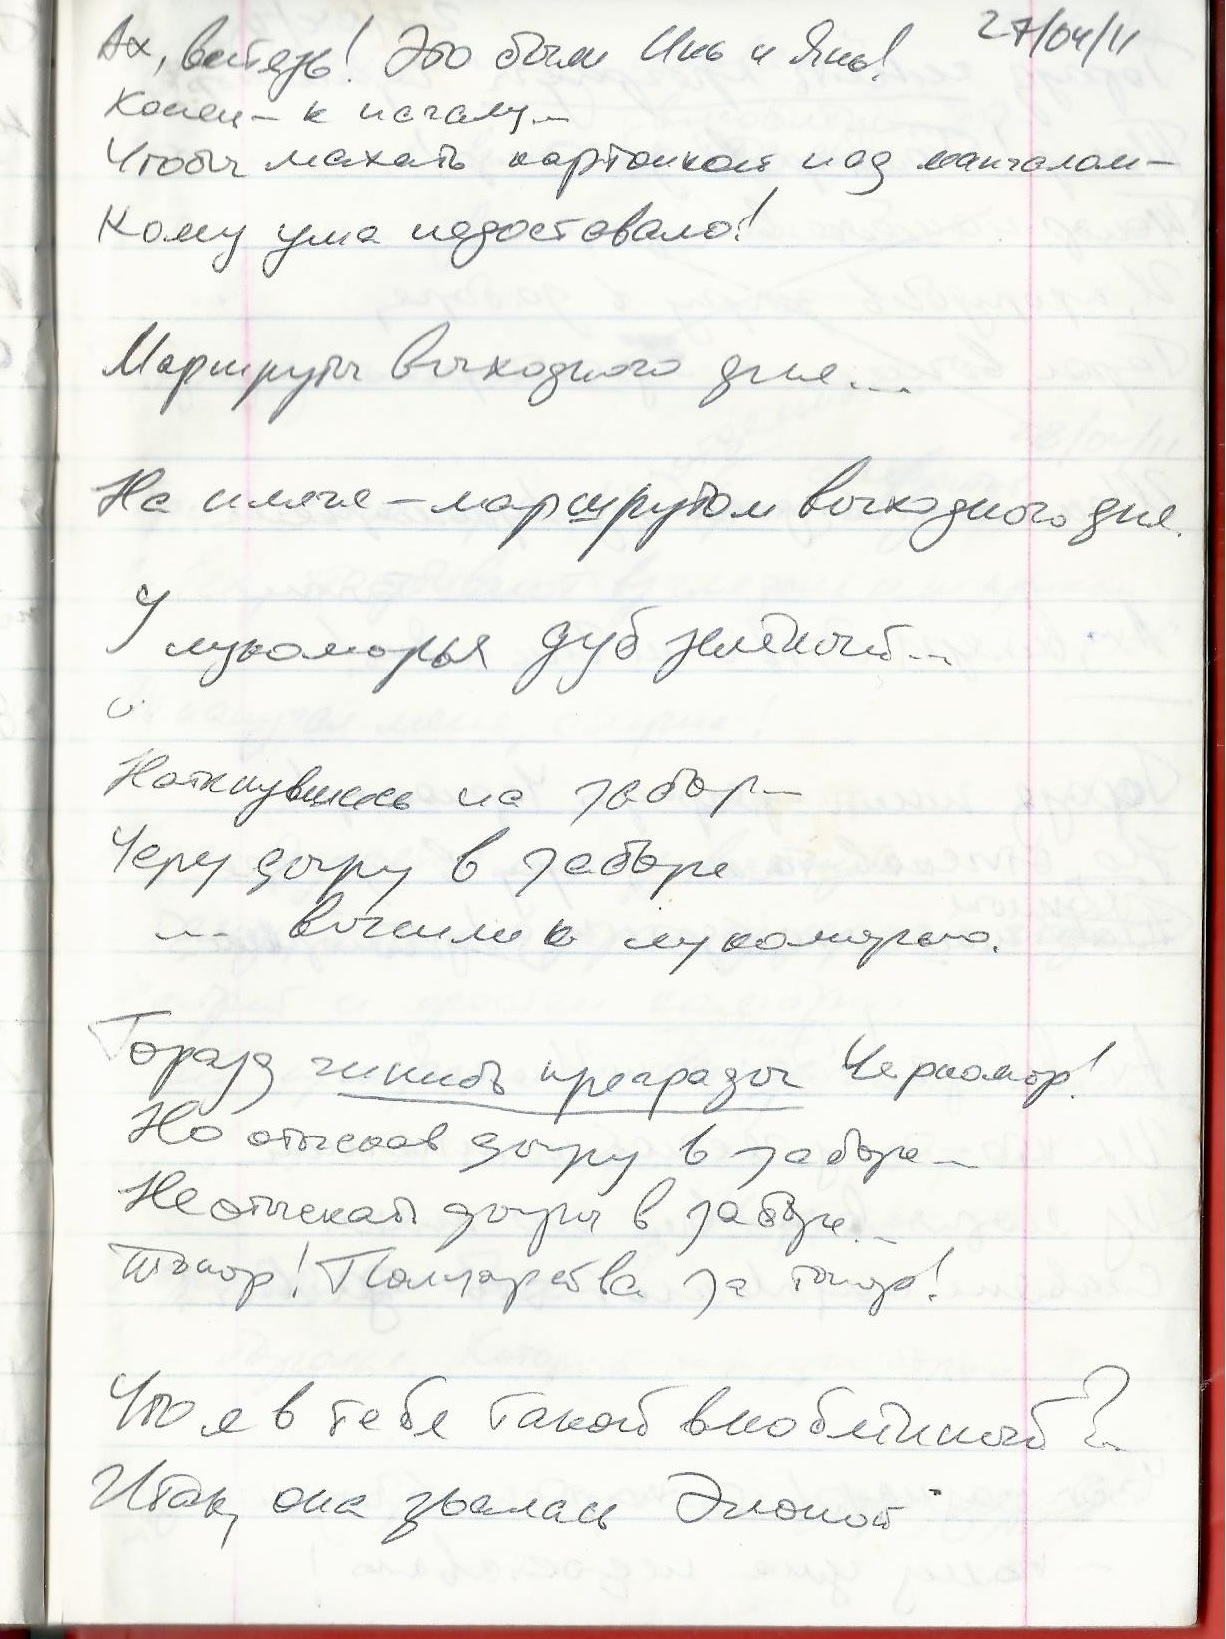 27/04/11
Ах, витязь! Это были Инь и Янь!
Конец – к началу...
Чтобы махать картонкой над мангалом –
Кому ума недоставало!
Маршруты выходного дня...
На пляже – маршрутом выходного дня.
У лукоморья дуб зелёный...
Наткнувшись на забор...
Через дыру в заборе
... вышли к лукоморью.
Горазд чинить преграды Черномор!
Но отыскав дыру в заборе...
Не отыскать дыры в заборе...
Топор! Полцарства за топор!
Что я в тебе такой влюблённый?..
Итак, она звалась Эленой